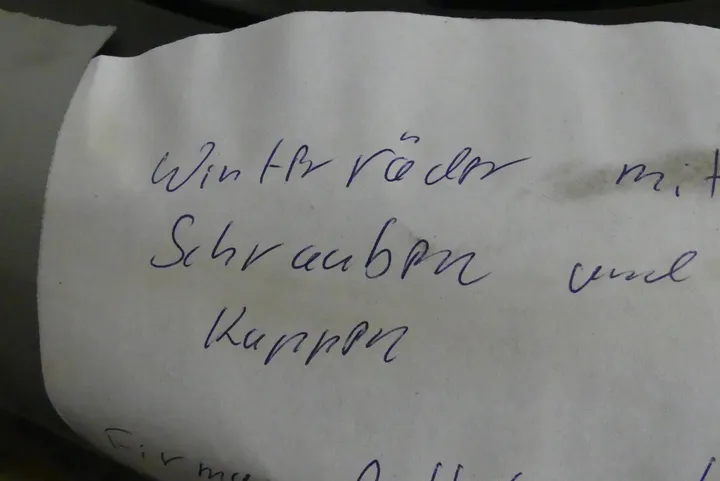 Winterräder mit
Schrauben und
Kappen
Firma